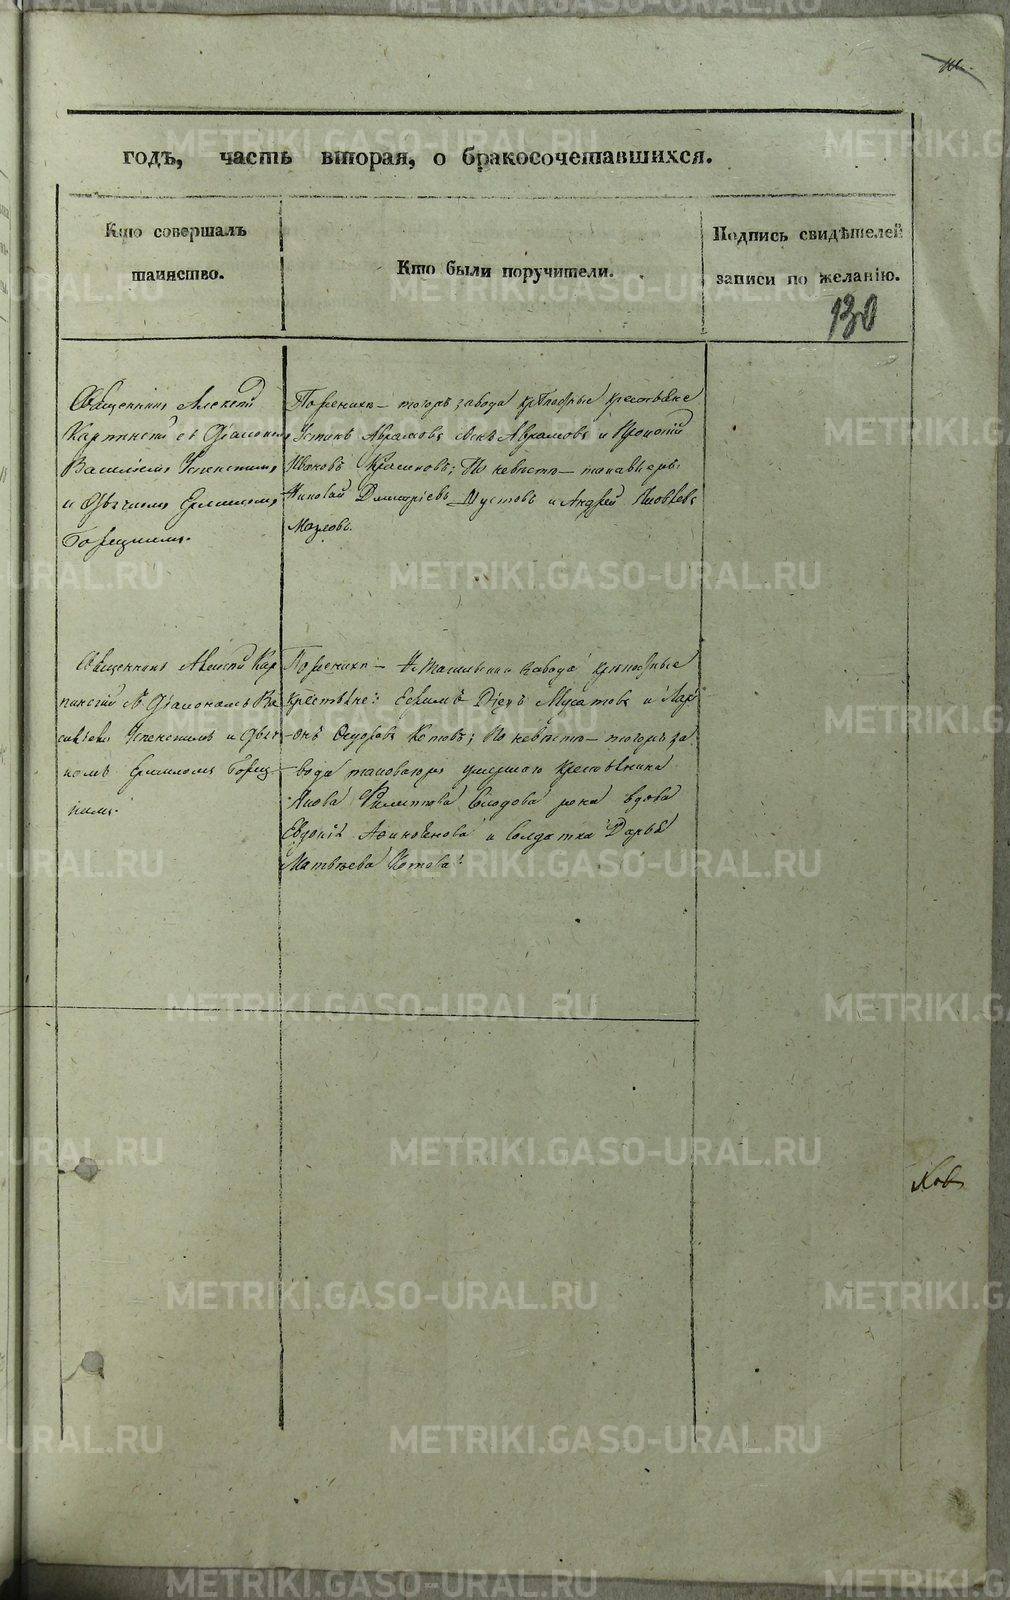 годъ, часть вторая, о бракосочетавшихся.
Кто совершалъ
таинство.
Кто были поручители.
Подпись свидѣтелей
записи по желанію.
130
Священникъ Алексѣй
Карпинскій съ Діакономъ
Василіемъ Успенскимъ
и Дьячкомъ Ермиломъ
Борецкимъ.
По женихѣ — тогожъ завода крѣпостные крестьяне
Устинъ Аврамовъ Аврамовъ и Прокопій
Ивановъ Красиковъ; По невѣстѣ — таковыежъ:
Николай Димитріевъ Шустовъ и Андрей Яковлевъ
Мазловъ.
Священникъ Алексѣй Кар
пинскій съ Діакономъ Ва
силіемъ Успенскимъ и Дьяч
комъ Ермиломъ Борец
кимъ.
По женихѣ — Н. Тагильскаго завода крѣпостные
крестьяне: Ефимъ Мусатовъ и Лар
онъ Федоровъ Котовъ; По невѣстѣ — тогожъ за
вода таковагожъ умершаго крестьянина
Якова Филиппова жена вдова
Евдокія и солдатка Дарья
Матвѣева Котова.
METRIKI.GASO-URAL.RU